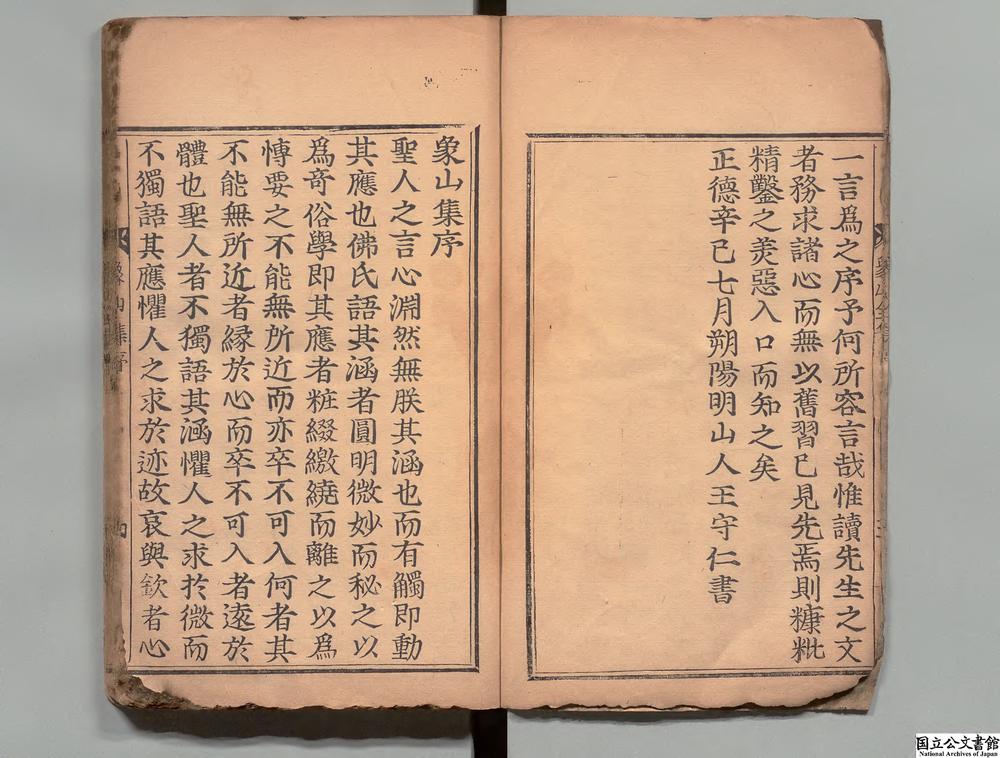 一言爲之序予何所容言哉惟讀先生之文
者務求諸心而無以舊習已見先焉則糠粃
精鑿之羙惡入口而知之矣
正德辛巳七月朔陽明山人王守仁書
象山集序
聖人之言心淵然無朕其涵也而有觸即動
其應也佛氏語其涵者圓明微妙而秘之以
爲奇俗學即其應者粧綴繳繞而離之以爲
慱要之不能無所近而亦卒不可入何者其
不能無所近者緣於心而卒不可入者逺於
體也聖人者不獨語其涵懼人之求於微而
不獨語其應懼人之求於迹故哀與欽者心
象山集序
四
国立公文書館
National Archives of Japan